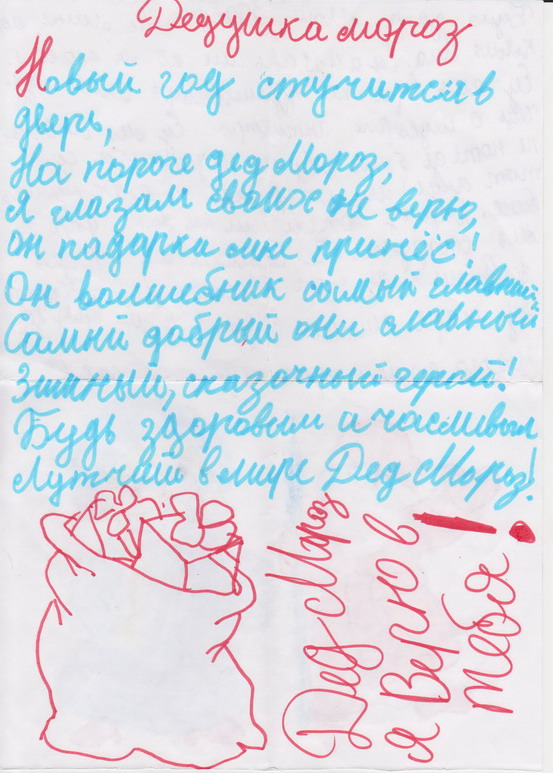 Дедушка мороз
Новый год стучится в
дверь,
На пороге дед Мороз,
Я глазам своих не верю,
он падарки мне принёс!
Он волшебник самый главный
Самый добрый они славный
Зимный, сказочный герой!
Будь здоровым и часливым
Лутчий в мире Дед Мороз!
Дед Мороз
я Верю в
тебя!